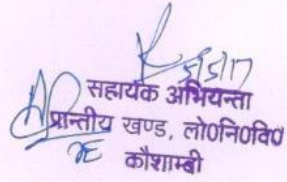 सहायक अभियन्ता
प्रान्तीय खण्ड, लो०नि०वि०
कौशाम्बी